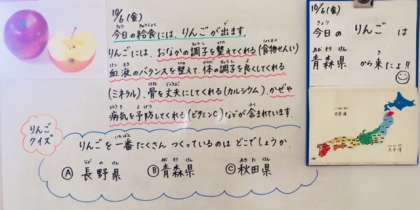 10/6(金)
今日の給食には、りんごが出ます。
りんごには、おなかの調子を整えてくれる(食物せんい)
血液のバランスを整えて体の調子を良くしてくれる
(ミネラル)、骨を丈夫にしてくれる(カルシウム)、かぜや
病気を予防してくれる(ビタミンC)などが含まれています。
りんご
クイズ
りんごを一番たくさんつくっているのはどこでしょうか
Ⓐ 長野県 Ⓑ 青森県 Ⓒ 秋田県
10/6(金)
今日の りんご は
青森県 から来たよ!!